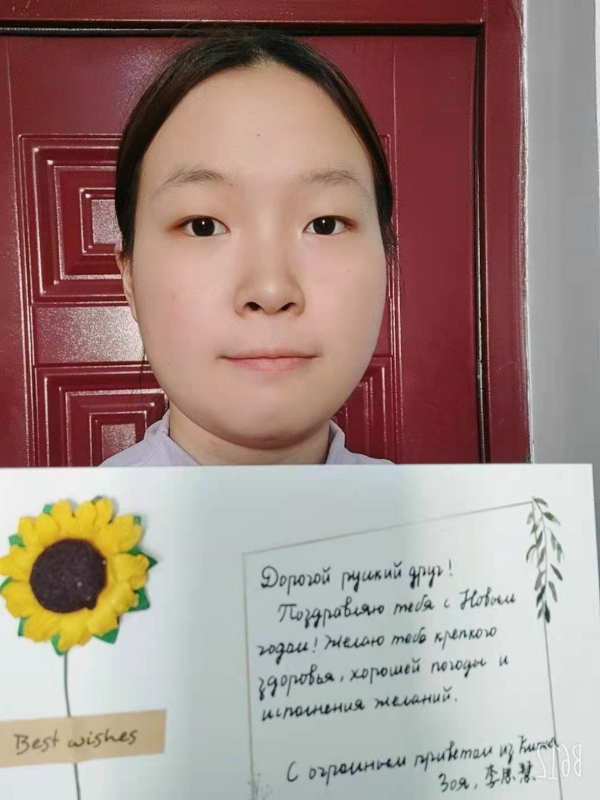 Дорогой русский друг!
Поздравляю тебя с Новым
годом! Желаю тебе крепкого
здоровья, хорошей погоды и
исполнения желаний.
Best wishes
С огромным приветом из Китая
Зоя, 李思慧
B612